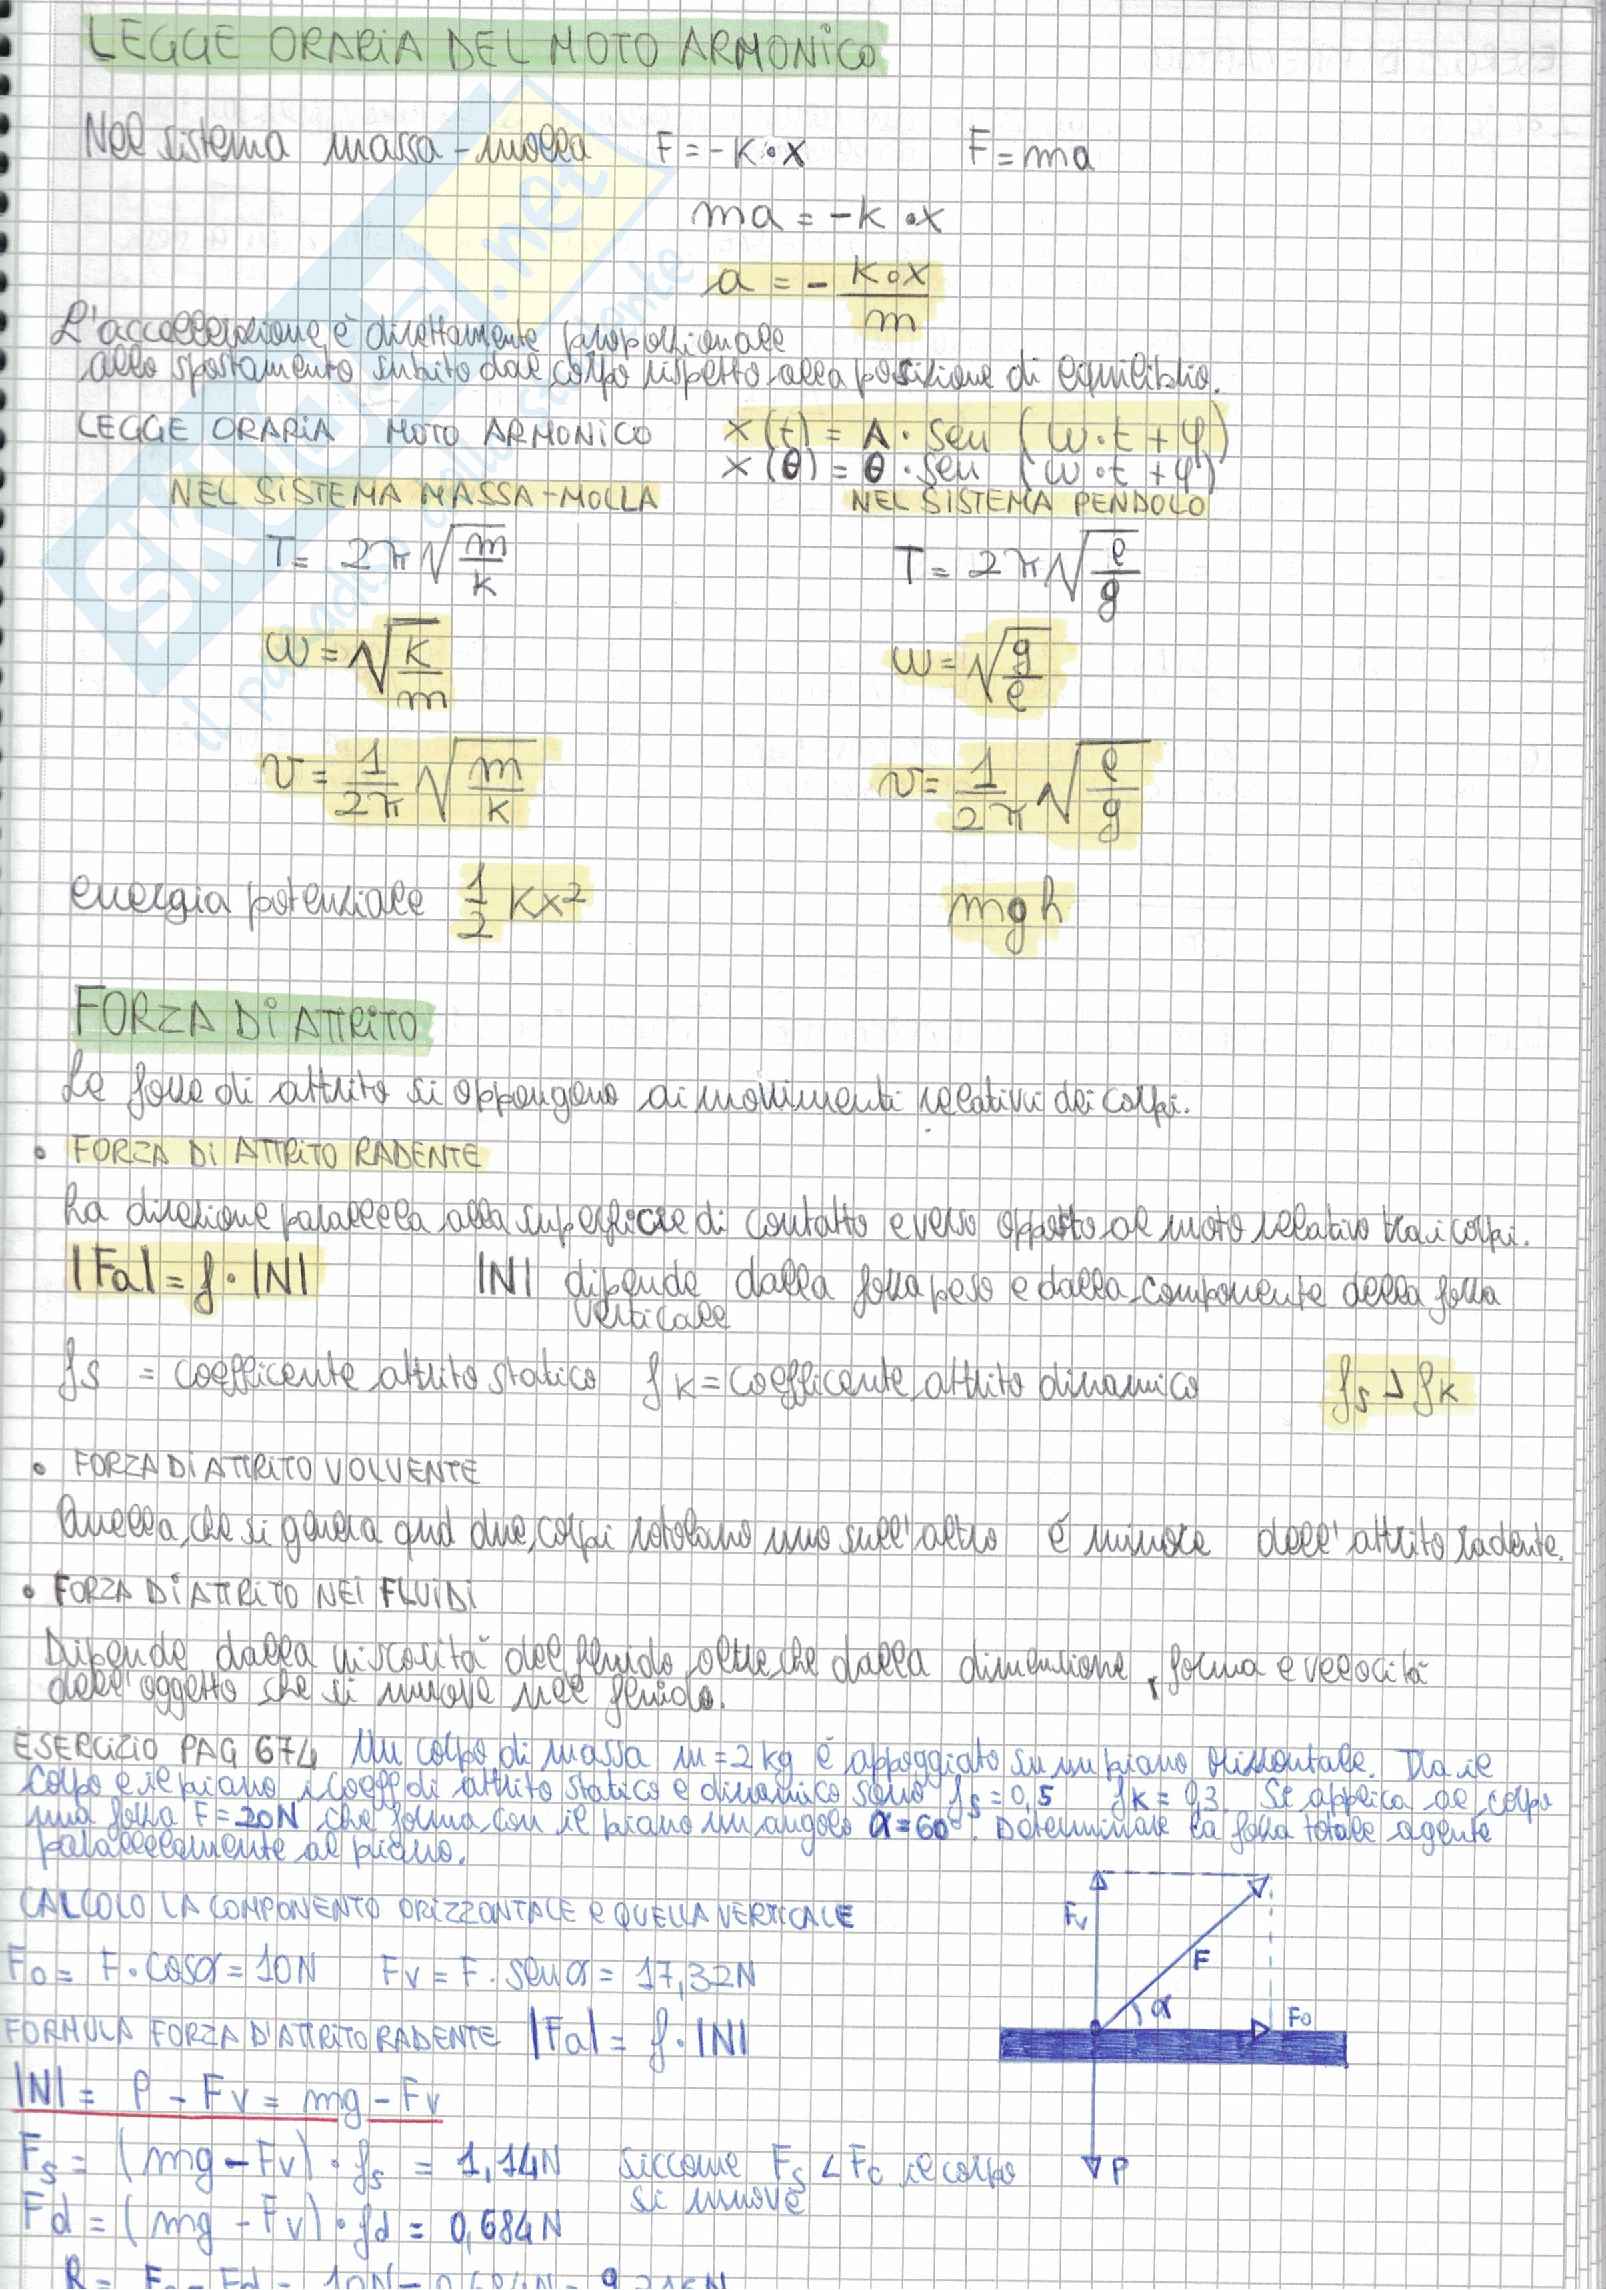 LEGGE ORARIA DEL MOTO ARMONICO
Nel sistema massa-molla F=-K·x F=ma
ma = -K·x
a = - K·x / m
L'accellerazione è direttamente proporzionale
allo spostamento subito dal corpo rispetto alla posizione di equilibrio.
LEGGE ORARIA MOTO ARMONICO x(t) = A· sen (ω·t+φ)
x(θ) = θ·sen (ω·t+φ)
NEL SISTEMA MASSA-MOLLA NEL SISTEMA PENDOLO
T= 2π√m/k T= 2π√l/g
ω=√k/m ω=√g/l
ν= 1/2π √m/k ν= 1/2π √l/g
energia potenziale 1/2 Kx² mgh
FORZA DI ATTRITO
Le forze di attrito si oppongono ai movimenti relativi dei corpi.
• FORZA DI ATTRITO RADENTE
ha direzione parallela alla superficie di contatto e verso opposto al moto relativo tra i corpi.
|Fa| = f·|N| |N| dipende dalla forza peso e dalla componente della forza
verticale
fs = coefficente attrito statico fk = coefficente attrito dinamico fs > fk
• FORZA DI ATTRITO VOLVENTE
Quella che si genera qnd due corpi rotolano uno sull'altro è minore dell'attrito radente.
• FORZA DI ATTRITO NEI FLUIDI
Dipende dalla viscosità del fluido oltre che dalla dimensione, forma e velocità
dell'oggetto che si muove nel fluido.
ESERCIZIO PAG 674 Un corpo di massa m=2kg è appoggiato su un piano orizzontale. Tra il
corpo e il piano i coeff di attrito statico e dinamico sono fs=0,5 fk=0,3. Si applica al corpo
una forza F=20N che forma con il piano un angolo α=60°. Determinare la forza totale agente
parallelamente al piano.
CALCOLO LA COMPONENTO ORIZZONTALE e QUELLA VERTICALE
Fo= F·cosα=10N Fv=F·senα= 17,32N
FORMULA FORZA D'ATTRITO RADENTE |Fa|= f·|N|
|N|= P - Fv = mg - Fv
Fs= (mg-Fv)·fs = 1,14N siccome Fs < Fo il corpo
si muove
Fd=(mg-Fv)·fd= 0,684N
R= Fo-Fd= 10N-0,684N= 9,316N
Fv
F
α
Fo
P
SKUOLA.net
il paradiso dello studente